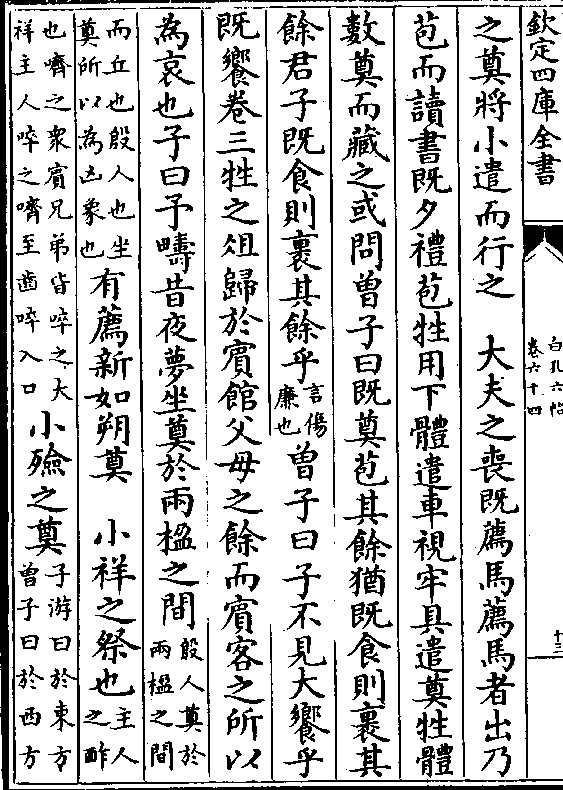 欽定四庫全書
白孔六帖
卷六十四
十三
之奠將小遣而行之　大夫之喪既薦馬薦馬者出乃
苞而讀書既夕禮苞牲用下體遣車視牢具遣奠牲體
數奠而藏之或問曾子曰既奠苞其餘猶既食則裹其
餘君子既食則裹其餘乎
言傷
廉也
曾子曰子不見大饗乎
既饗卷三牲之俎歸於賓館父母之餘而賓客之所以
為哀也子曰予疇昔夜夢坐奠於兩楹之間
殷人奠於
兩楹之間
而丘也殷人也坐
奠所以為凶象也
有薦新如朔奠　小祥之祭也
主人
之酢
也嚌之衆賓兄弟皆啐之大
祥主人啐之嚌至齒啐入口
小殮之奠
子游曰於東方
曾子曰於西方